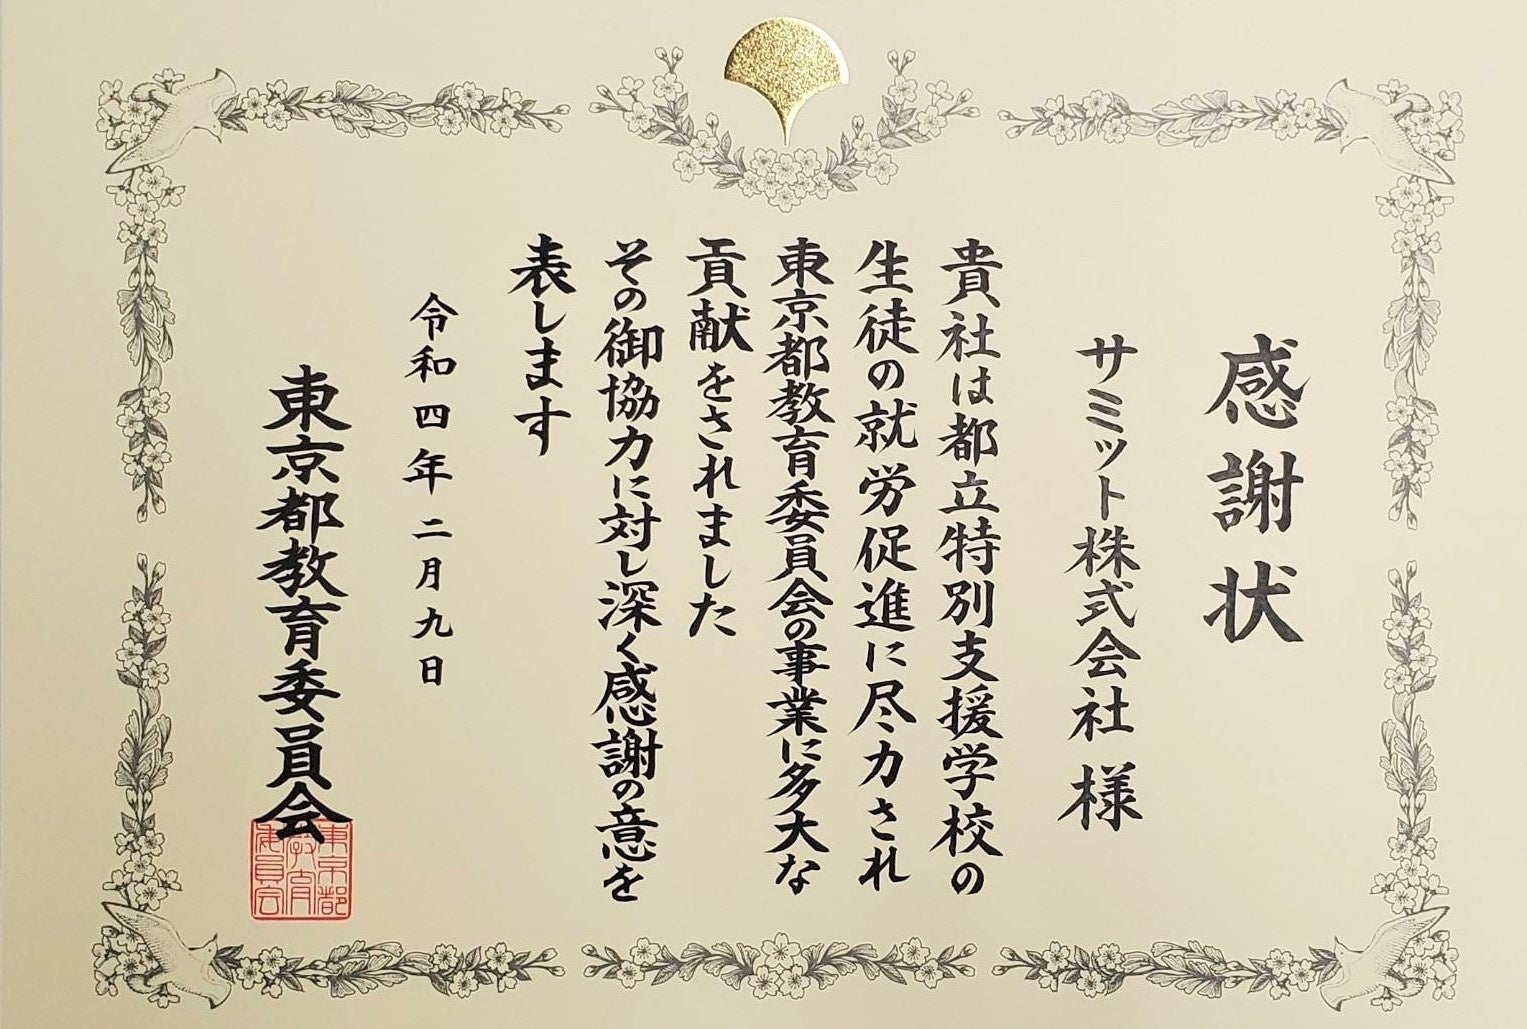 感謝状
サミット株式会社 様
貴社は都立特別支援学校の
生徒の就労促進に尽力され
東京都教育委員会の事業に多大な
貢献をされました
その御協力に対し深く感謝の意を
表します
令和四年二月九日
東京都教育委員会
東京都
教育
委員会